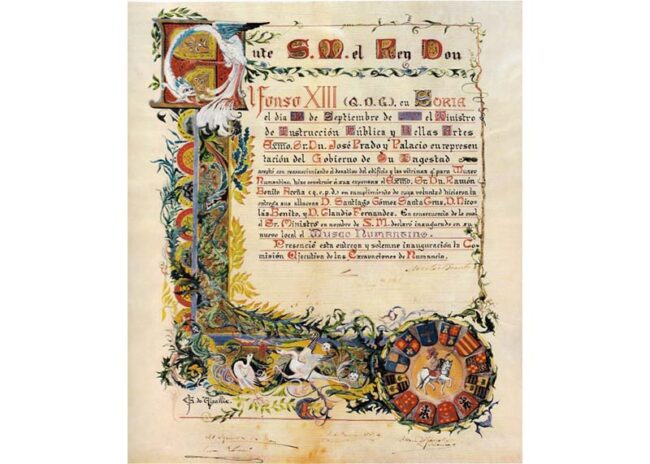 Ante S. M. el Rey Don
Alfonso XIII (Q. D. G.), en SORIA
el día de Septiembre de el Ministro
de Instrucción Pública y Bellas Artes
Excmo. Sr. Dn. José Prado y Palacio en represen
tación del Gobierno de Su Magestad
aceptó con reconocimiento el donativo del edificio y las vitrinas qe. para Museo
Numantino, hizo construir á sus expensas el Excmo. Sr. Dn. Ramón
Benito Aceña (q. e. p. d.) en cumplimiento de cuya voluntad hicieron la
entrega sus albaceas D. Santiago Gómez Santa Cruz, D. Nico
lás Benito, y D. Claudio Fernandez. En consecuencia de lo cual
el Sr. Ministro en nombre de S. M. declaró inaugurado en su
nuevo local el MUSEO NUMANTINO.
Presenció esta entrega y solemne inauguración la Co
misión Ejecutiva de las Excavaciones de Numancia.